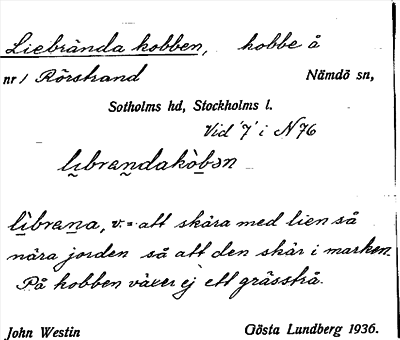 Liebrända kobben, kobbe å
nr 1 Rörstrand Nämdö sn,
Sotholms hd, Stockholms l.
Vid '7' i N76
lìbrandakòbən
lìbrana, v. = att skära med lien så
nära jorden så att den skär i marken.
På kobben växer ej ett grässtrå.
John Westin Gösta Lundberg 1936.